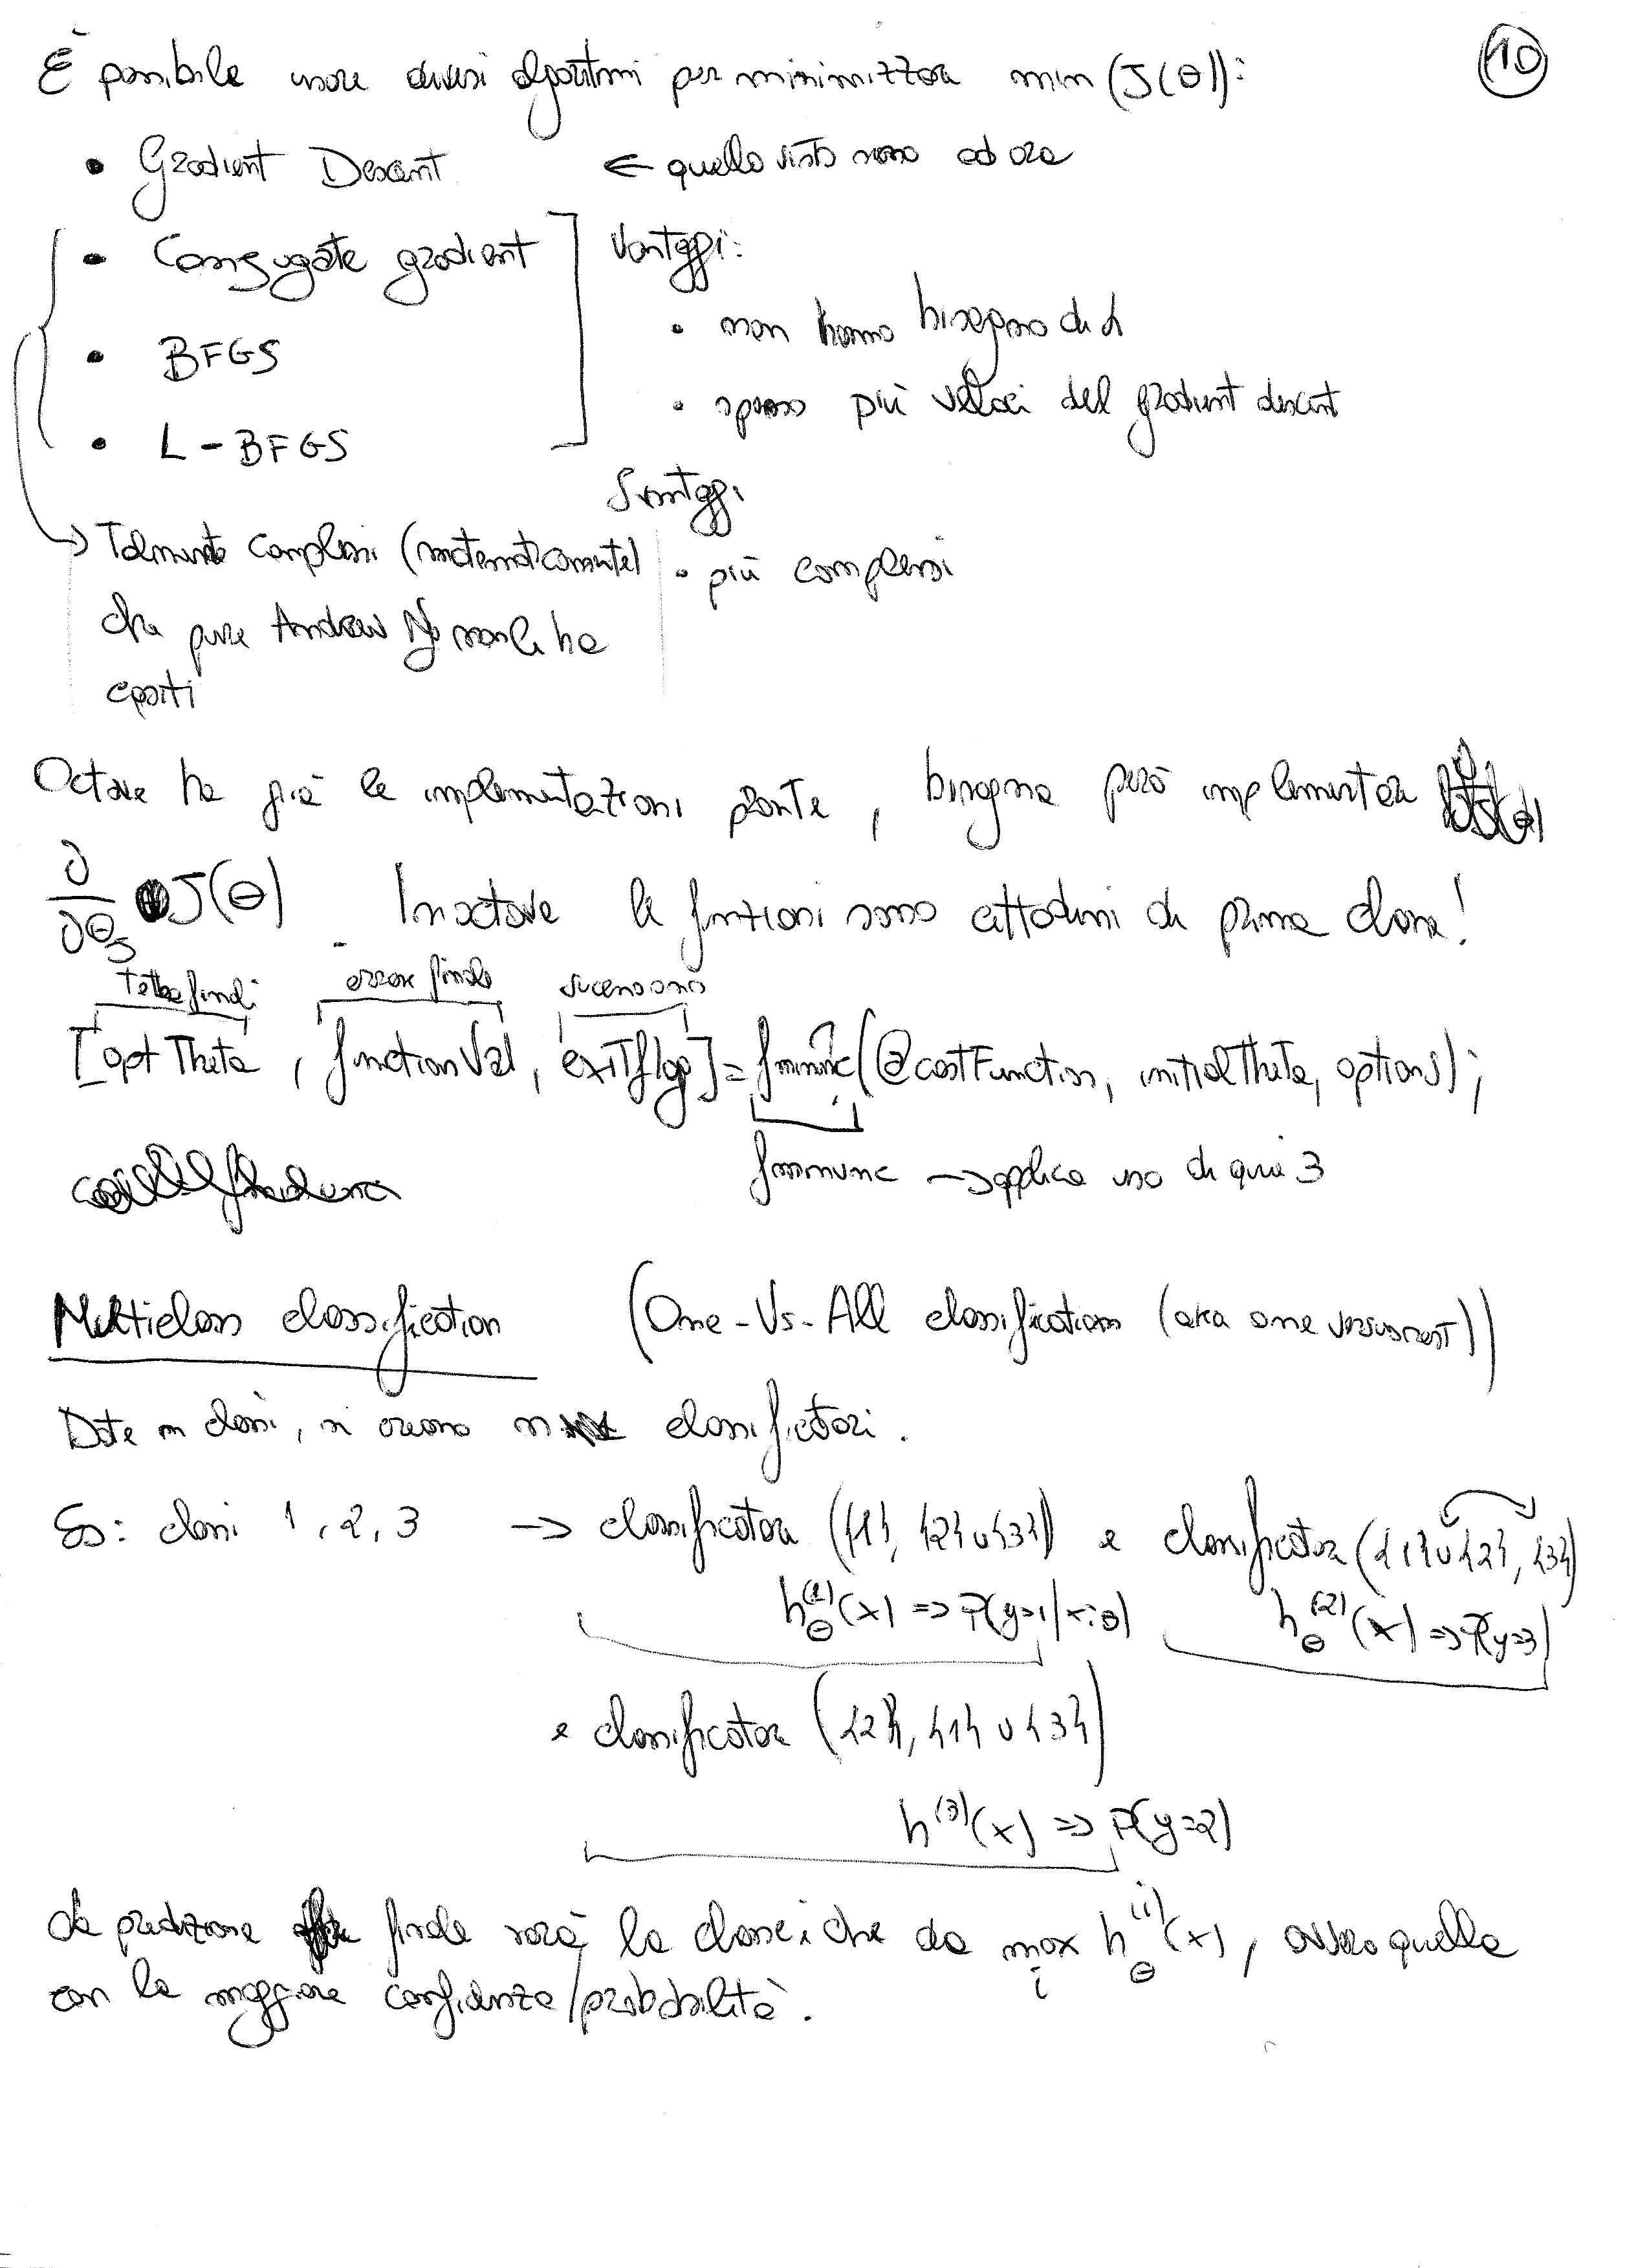 È possibile usare diversi algoritmi per minimizzare min (J(θ)):
10
• Gradient Descent ← quello visto sino ad ora
• Conjugate gradient
• BFGS
• L-BFGS
Vantaggi:
• non hanno bisogno di α
• spesso più veloci del gradient descent
Svantaggi
• più complessi
→ Talmente complessi (matematicamente)
che pure Andrew Ng non li ha
capiti
Octave ha già le implementazioni pronte, bisogna però implementare
∂/∂θj J(θ). In octave le funzioni sono cittadini di prima classe!
Theta finali error finale success o no
[optTheta, functionVal, exitflag] = fminunc(@costFunction, initialTheta, options);
fminunc → applica uno di quei 3
Multiclass classification (One-Vs-All classification (aka one versus rest))
Date n classi, si creano n classificatori.
Es: classi 1, 2, 3 → classificatore ({1}, {2}∪{3}) e classificatore ({1}∪{2}, {3})
hθ^(1)(x) => P(y=1|x;θ) hθ^(2)(x) => P(y=3)
e classificatore ({2}, {1}∪{3})
h^(3)(x) => P(y=2)
La predizione finale sarà la classe i che da max_i hθ^(i)(x), ovvero quella
con la maggiore confidenza/probabilità.